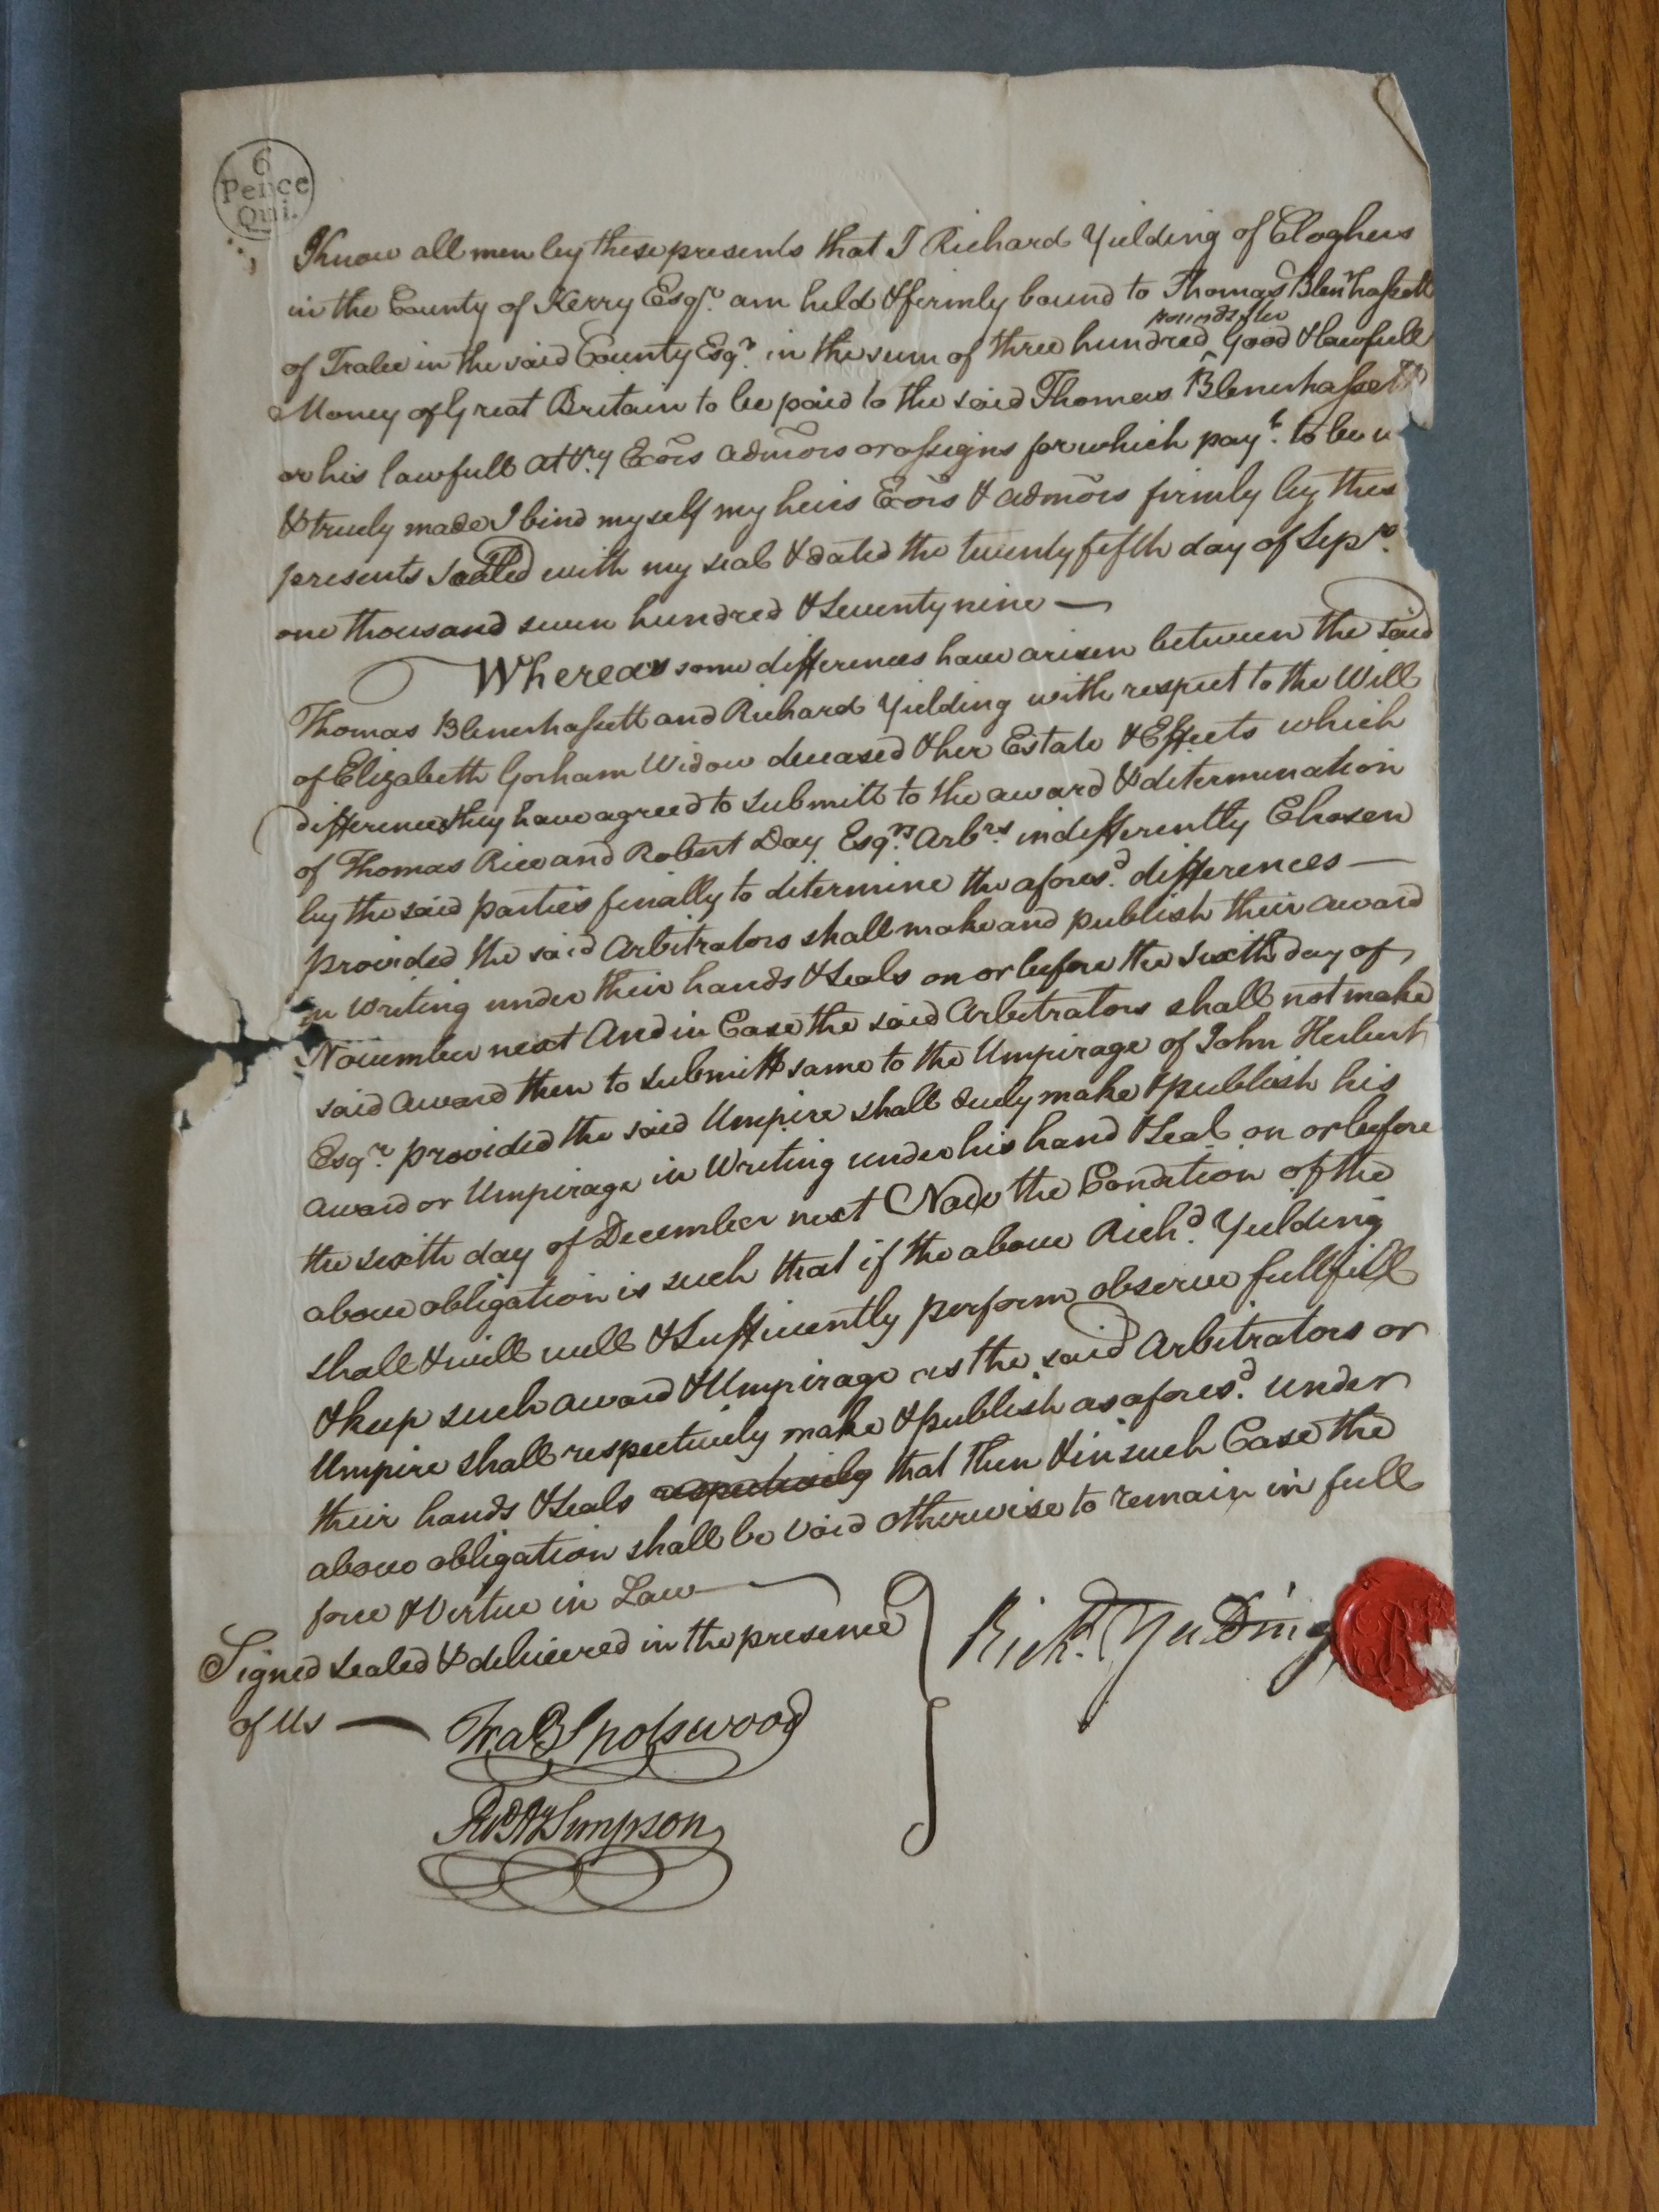 6
Pence
Qui.
Know all men by these presents that I Richard Yielding of Cloghers
in the County of Kerry Esqr. am held & firmly bound to Thomas Blenrhassett
of Tralee in the said County Esqr. in the sum of three hundred pounds ster Good & lawfull
Money of Great Britain to be paid to the said Thomas Blenerhassett
or his lawfull Attry Exōrs admōrs or assigns for which payt. to be
& truely made I bind my self my heirs Exōrs & admōrs firmly by these
presents Sealled with my seal & dated the twenty fifth day of Sepr.
one thousand seven hundred & Seventy nine —
Whereas some differences have arisen between the said
Thomas Blenerhassett and Richard Yielding with respect to the Will
of Elizabeth Gorham Widow deceased & her Estate & Effects which
differences they have agreed to submitt to the award & determination
of Thomas Rice and Robert Day Esqrs. Arbrs. indifferently Chosen
by the said parties finally to determine the aforesd. differences —
provided the said Arbitrators shall make and publish their award
in Writing under their hands & Seals on or before the Sixth day of
November next And in Case the said Arbitrators shall not make
said Award then to submitt same to the Umpirage of John Herbert
Esqr. provided the said Umpire shall duely make & publish his
award or Umpirage in Writing under his hand & Seal on or before
the sixth day of December next Now the Condition of the
above obligation is such that if the above Richd. Yielding
shall & will well & Sufficiently perform observe fullfill
& keep such award & Umpirage as the said Arbitrators or
Umpire shall respectively make & publish as aforesd. under
their hands & Seals respectively that then & in such Case the
above obligation shall be void otherwise to remain in full
force & Virtue in Law —
Signed sealed & delivered in the presence
of Us — Fra Spotswood
Simpson
Richd. Yielding